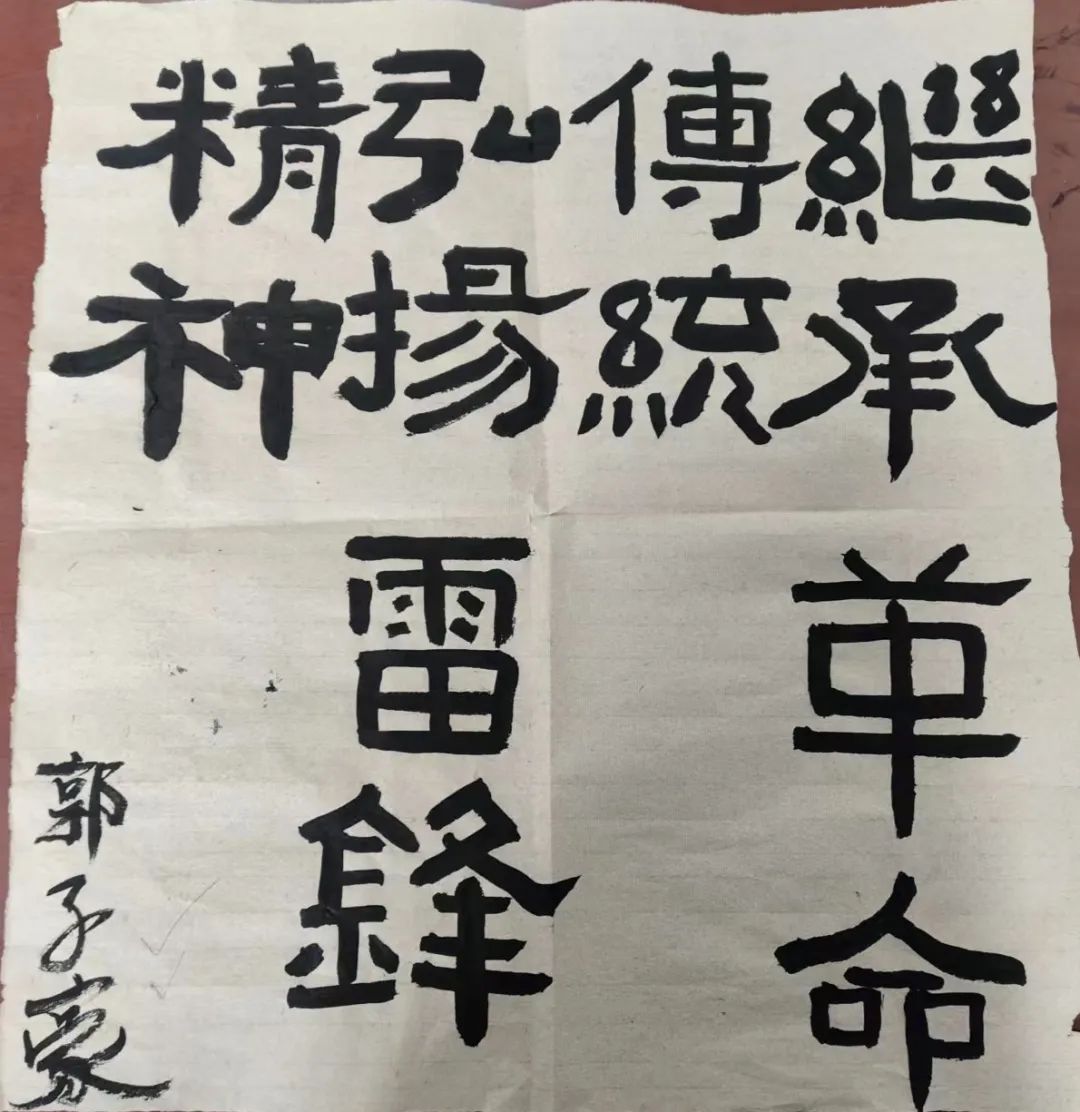 繼承革命
傳統
弘揚雷鋒
精神
郭子豪